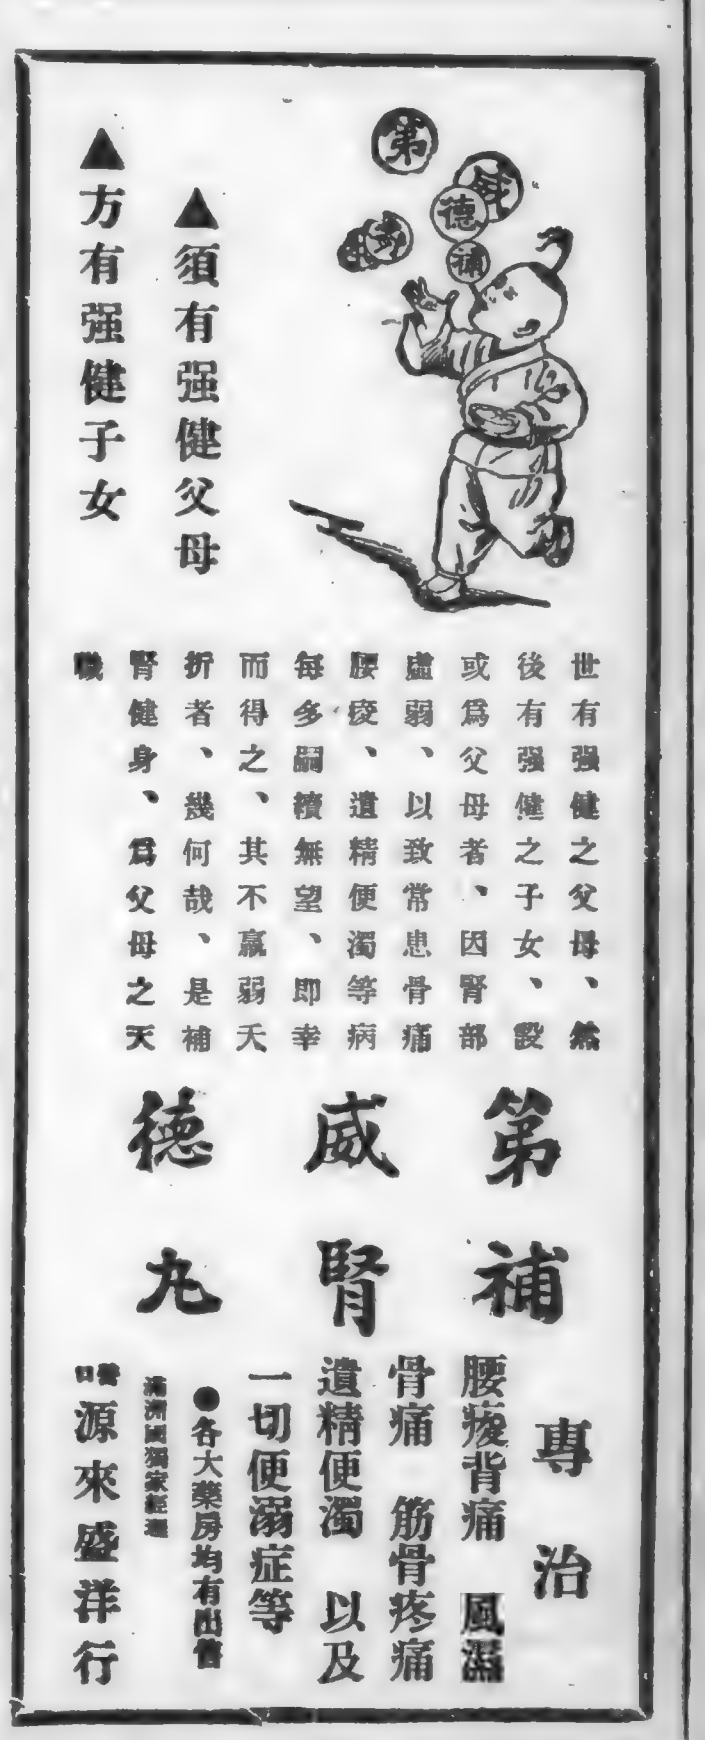 弟
威
德
補
▲須有强健父母
▲方有强健子女
世有强健之父母、然
後有强健之子女、設
或爲父母者、因腎部
虛弱、以致常患骨痛
腰痠、遺精便濁等病
每多嗣續無望、即幸
而得之、其不羸弱夭
折者、幾何哉、是補
腎健身、爲父母之天
職
第威德
補腎丸
專治
腰痠背痛 風濕
骨痛 筋骨疼痛
遺精便濁 以及
一切便溺症等
●各大藥房均有出售
滿洲國獨家經理
營口 源來盛洋行